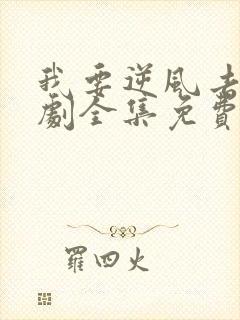 我要逆风去
劇全集免費
羅四火